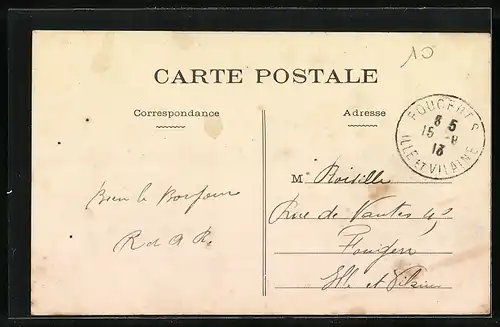 10
CARTE POSTALE
Correspondance
Adresse
FOUGERES
8 5
15 -8
13
ILLE ET VILAINE
M Roisille
Bien le Bonjour
Rue de Nantes 45
R d A R.
Fougères
Ille et Vilaine